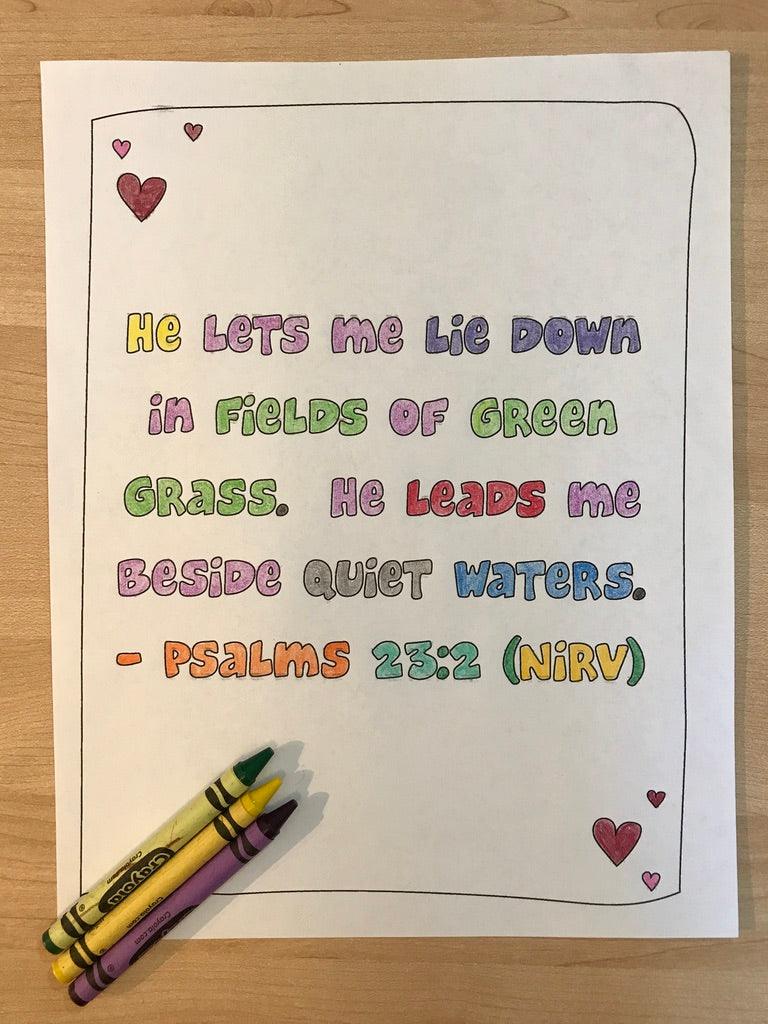 He Lets me Lie Down
in Fields of Green
Grass. He Leads me
Beside Quiet Waters.
- Psalms 23:2 (NiRV)
Crayola
Crayola.com
Crayola.com